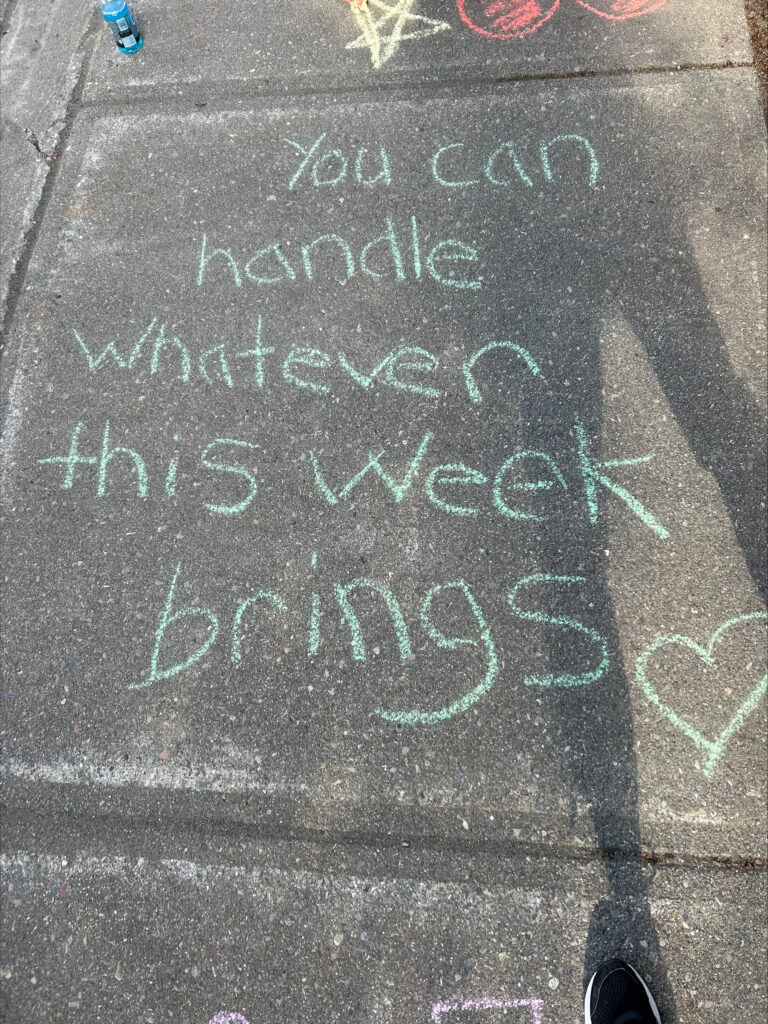 You can
handle
whatever
this week
brings